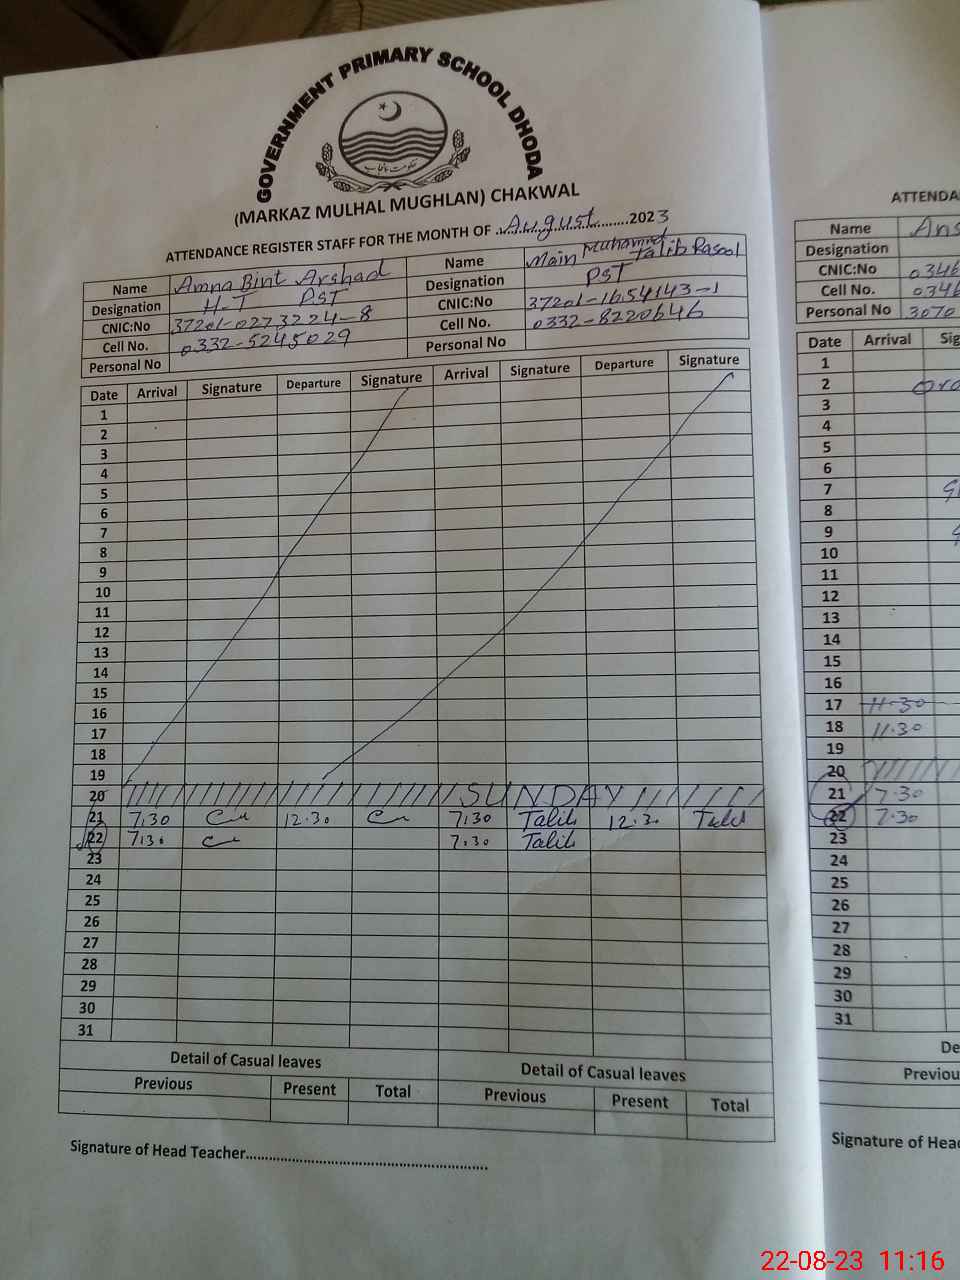 GOVERNMENT PRIMARY SCHOOL DHODA
حکومت پنجاب
(MARKAZ MULHAL MUGHLAN) CHAKWAL
ATTENDANCE REGISTER STAFF FOR THE MONTH OF August 2023
Name Amna Bint Arshad Name Main Muhammad Talib Rasool
Designation H.T PST Designation PST
CNIC:No 37201-0273224-8 CNIC:No 37201-1654143-1
Cell No. 0332-5245029 Cell No. 0332-8220646
Personal No Personal No
Date Arrival Signature Departure Signature Arrival Signature Departure Signature
1
2
3
4
5
6
7
8
9
10
11
12
13
14
15
16
17
18
19
20 SUNDAY
21 7.30 12.30 7.30 Talib 12.30 Talib
22 7.30 7.30 Talib
23
24
25
26
27
28
29
30
31
Detail of Casual leaves Detail of Casual leaves
Previous Present Total Previous Present Total
Signature of Head Teacher
ATTENDA
Name Ans
Designation
CNIC:No 0346
Cell No. 0346
Personal No 3070
Date Arrival Sig
1
2
3
4
5
6
7
8
9
10
11
12
13
14
15
16
17 11-30
18 11.30
19
20
21 7.30
22 7.30
23
24
25
26
27
28
29
30
31
De
Previou
Signature of Hea
22-08-23 11:16